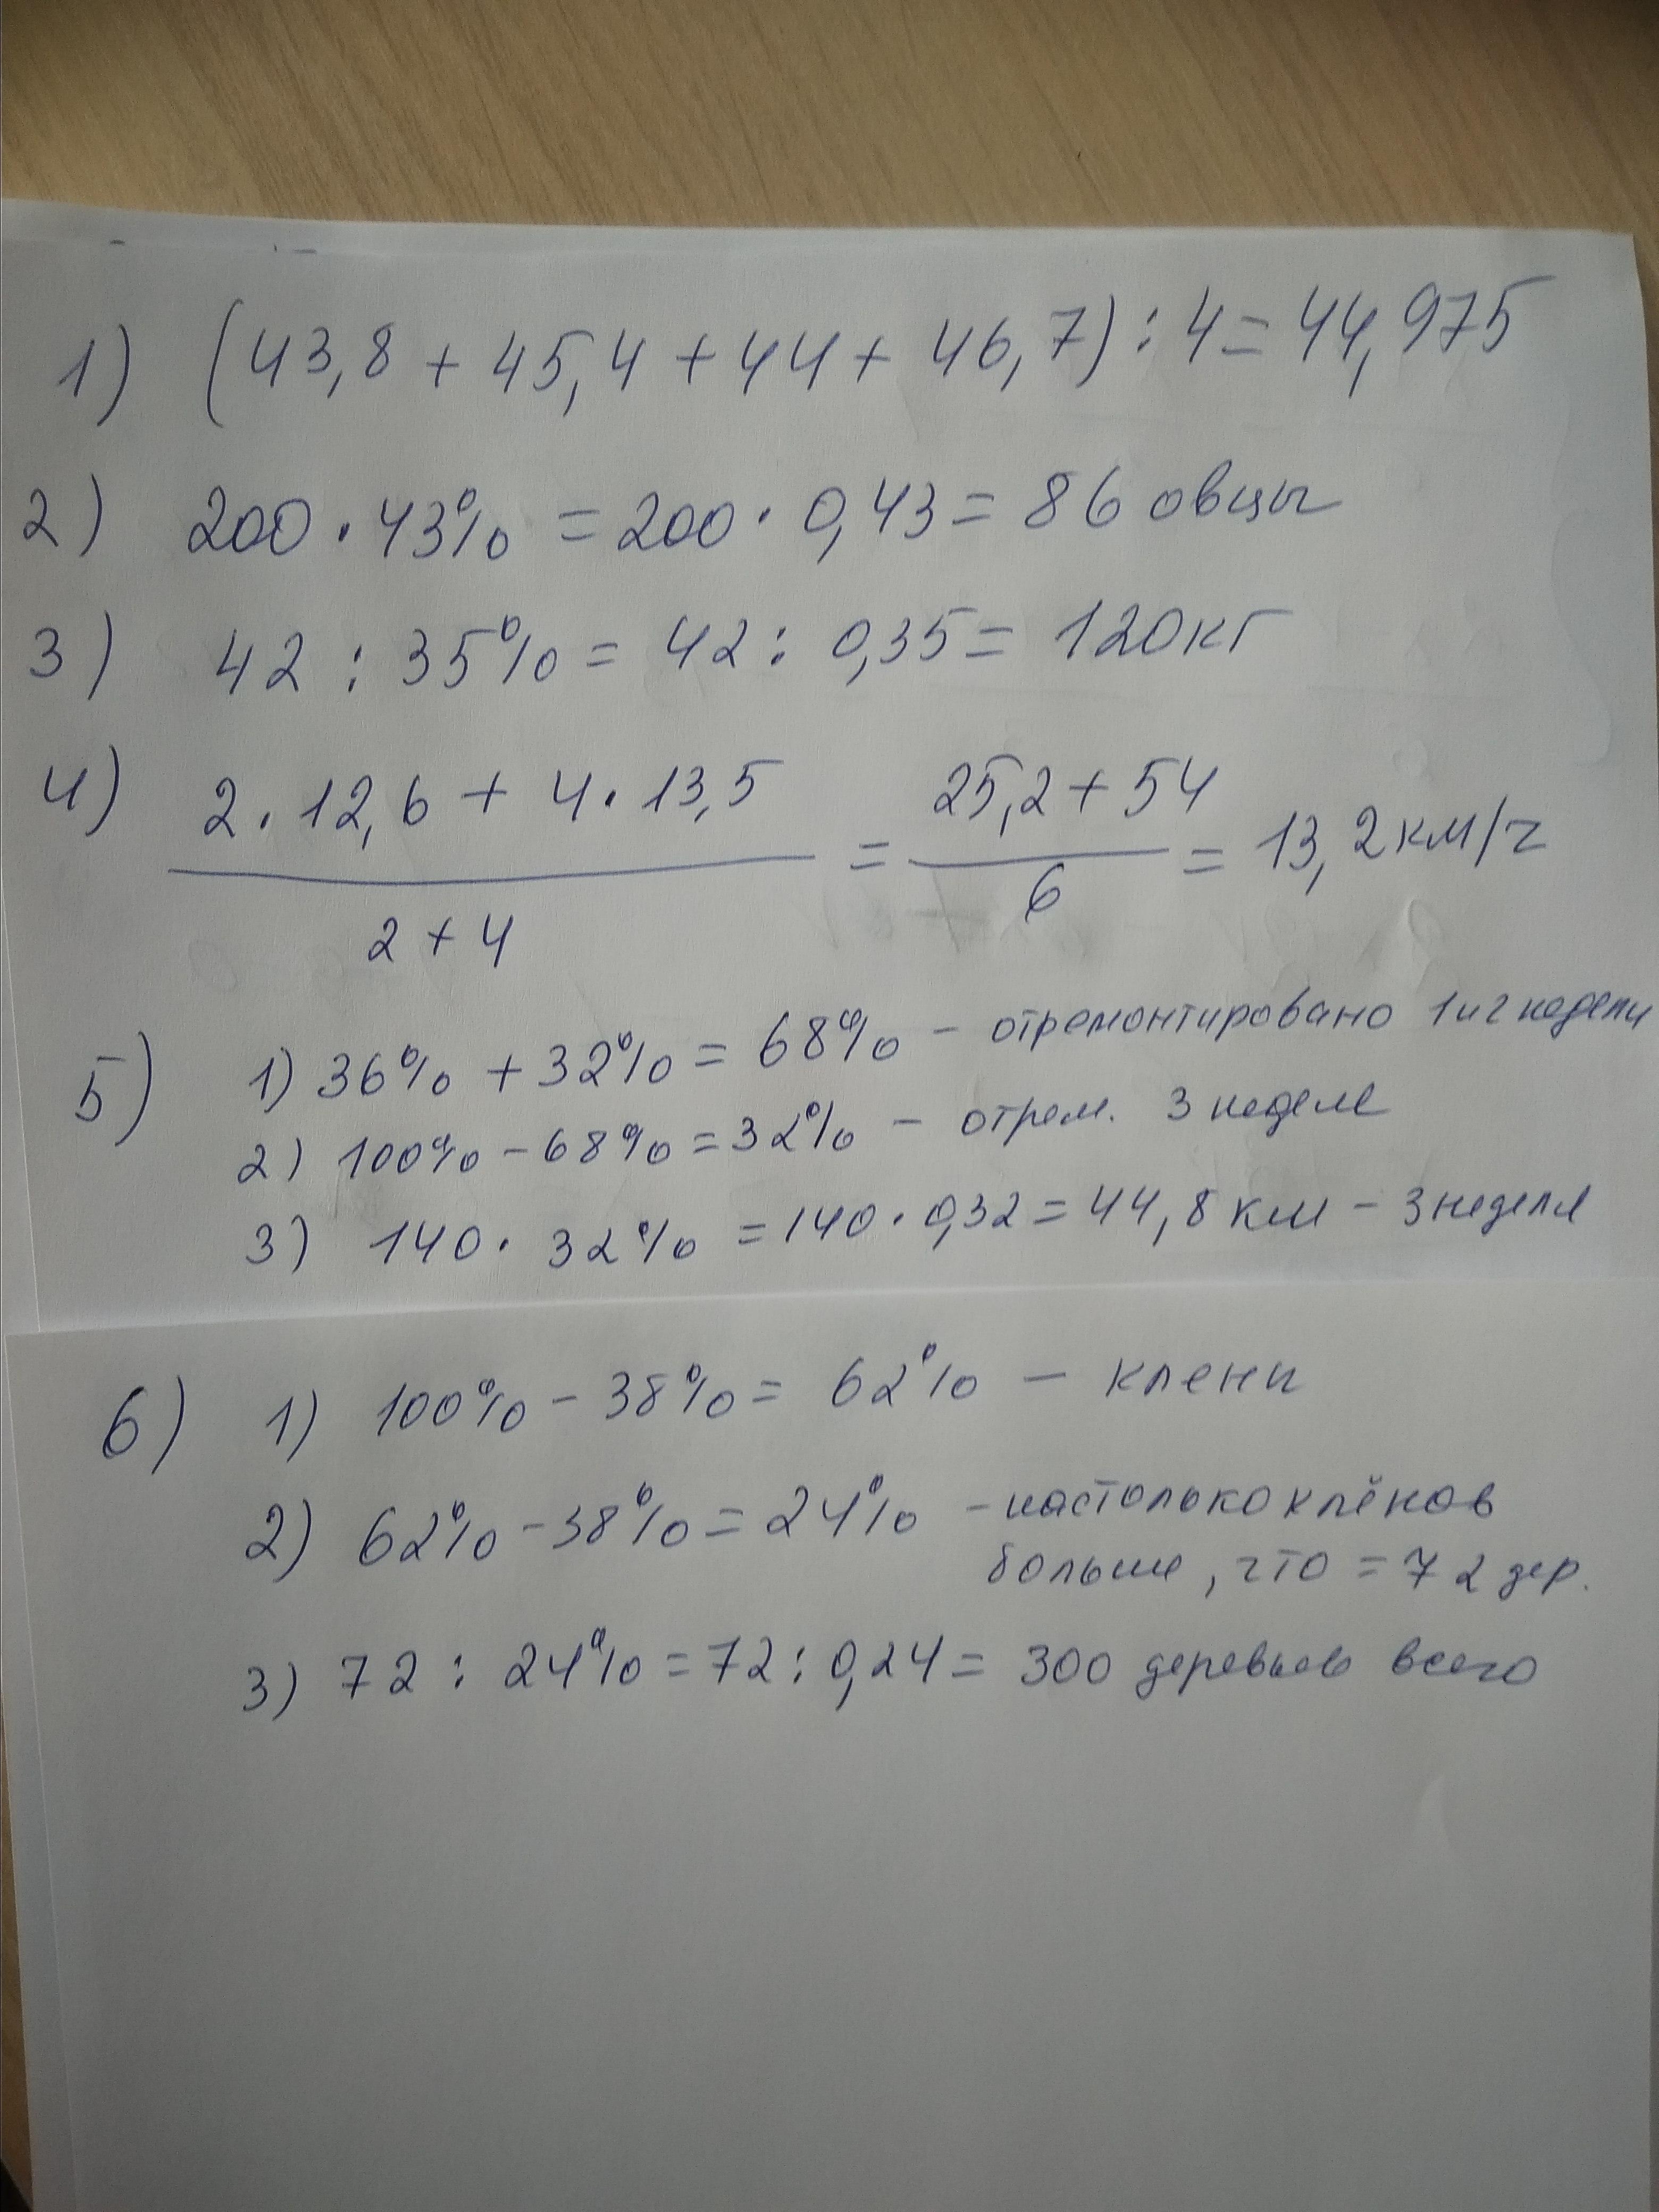 1) (43,8 + 45,4 + 44 + 46,7) : 4 = 44,975
2) 200 · 43% = 200 · 0,43 = 86 овцы
3) 42 : 35% = 42 : 0,35 = 120 кг
4) 2 · 12,6 + 4 · 13,5 / 2 + 4 = 25,2 + 54 / 6 = 13,2 км/ч
5) 1) 36% + 32% = 68% – отремонтировано 1 и 2 недели
2) 100% – 68% = 32% – отрем. 3 неделе
3) 140 · 32% = 140 · 0,32 = 44,8 км – 3 неделя
6) 1) 100% – 38% = 62% – клени
2) 62% – 38% = 24% – настолько клёнов
больше, что = 72 дер.
3) 72 : 24% = 72 : 0,24 = 300 деревьев всего